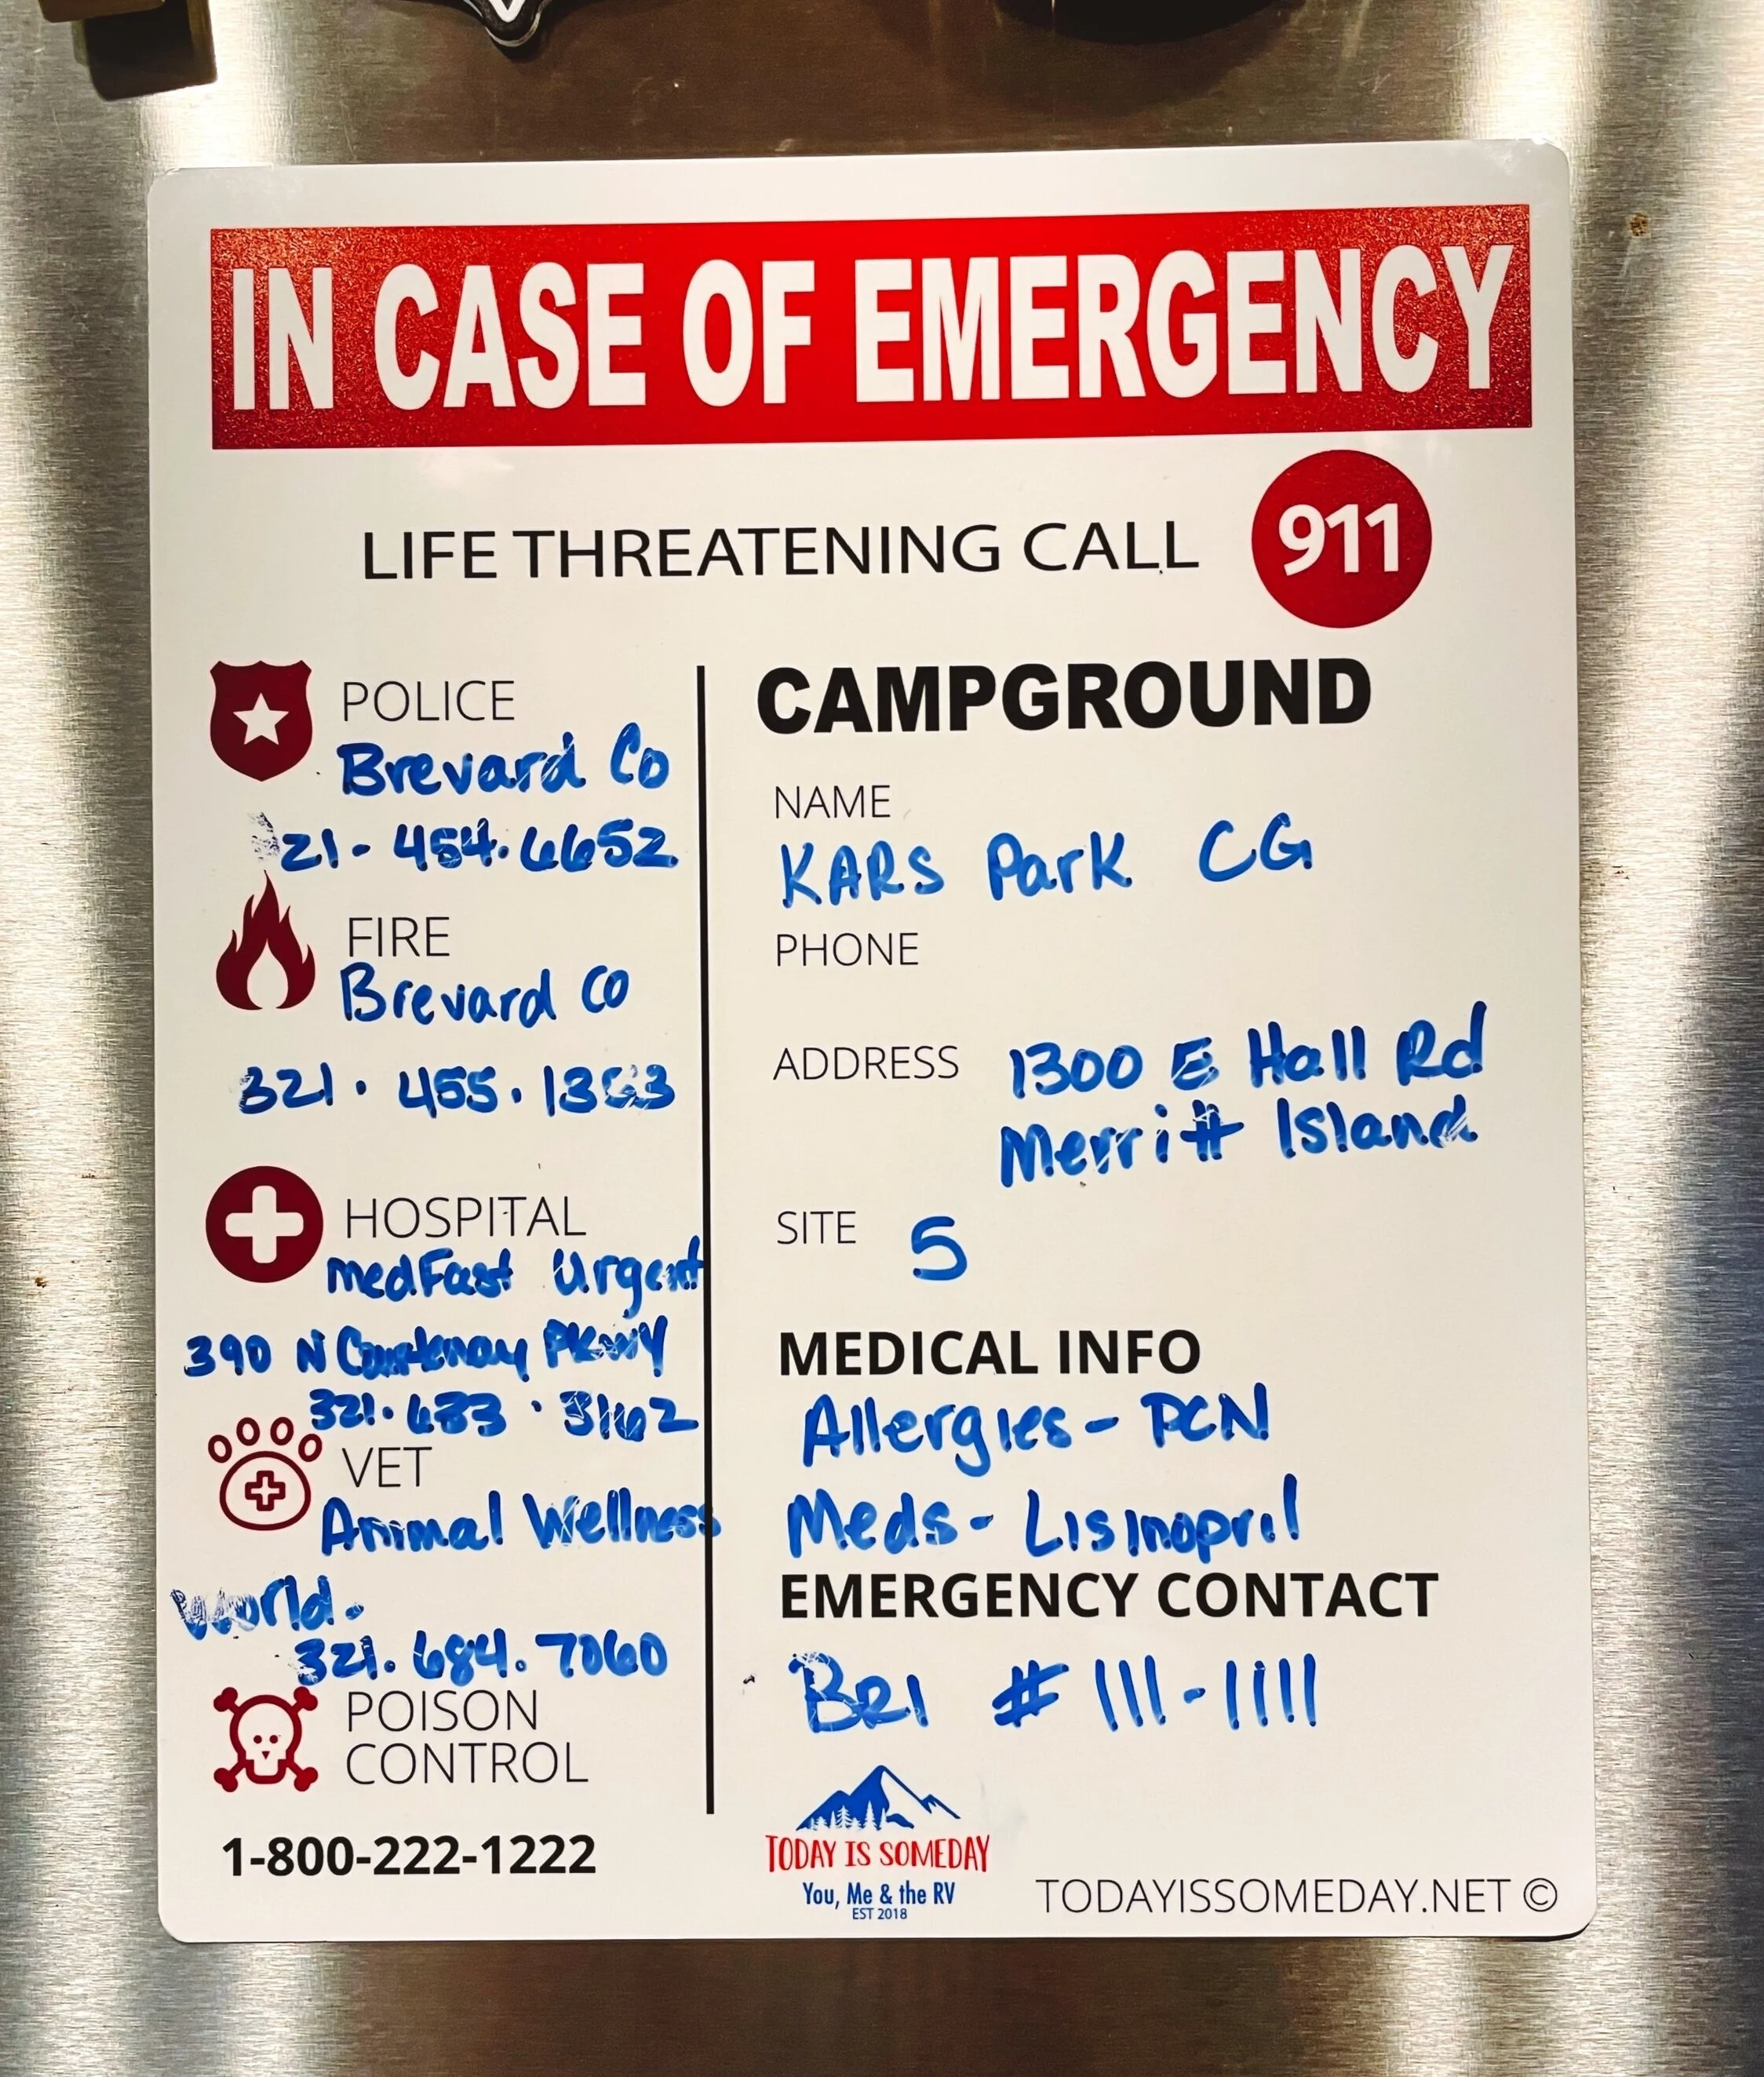 IN CASE OF EMERGENCY
LIFE THREATENING CALL 911
POLICE
Brevard Co
21-454.6652
FIRE
Brevard Co
321.455.
HOSPITAL
medFast Urgent
390 N Courtenay PKWY
321.633.3162
VET
Animal Wellness
World.
321.684.7060
POISON
CONTROL
1-800-222-1222
CAMPGROUND
NAME
KARS Park CG
PHONE
ADDRESS 1300 E Hall Rd
Merritt Island
SITE 5
MEDICAL INFO
Allergies - PCN
Meds - Lisinopril
EMERGENCY CONTACT
BRI # 111-1111
TODAY IS SOMEDAY
You, Me & the RV
EST 2018
TODAYISSOMEDAY.NET ©